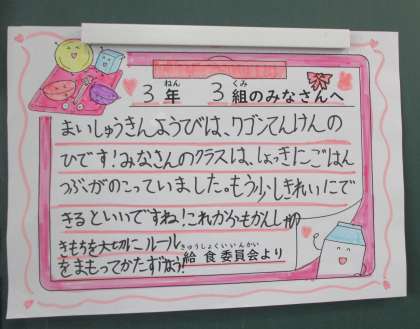 3年 3組のみなさんへ
ねん くみ
まいしゅうきんようびは、ワゴンてんけんの
ひです!みなさんのクラスは、しょっきにごはん
つぶがのこっていました。もう少しきれいにで
きるといいですね!これからもかんしゃの
きもちを大切に ルール
をまもってかたずけよう!
きゅうしょくいいんかい
給食委員会より